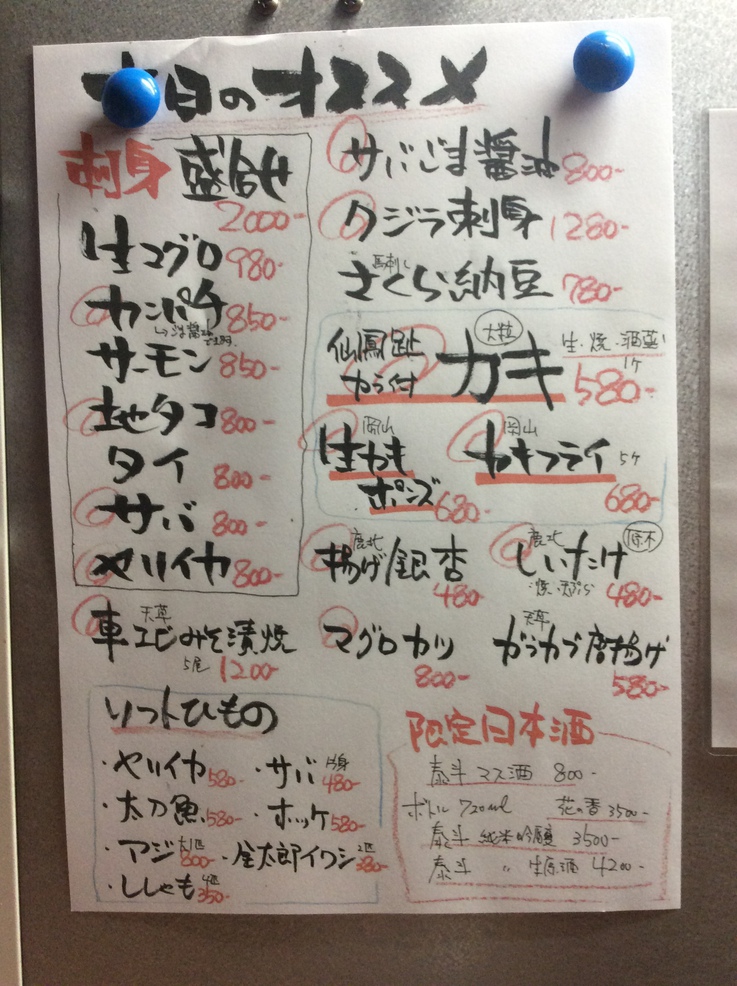 本日のオススメ
刺身 盛合せ
2000-
生マグロ 980-
カンパチ 850-
サーモン 850-
地タコ 800-
タイ 800-
サバ 800-
ヤリイカ 800-
サバごま醤油 800-
クジラ刺身 1280-
馬刺し
さくら納豆 780-
仙鳳趾 カラ付
大粒
カキ
生・焼・酒蒸
1ケ
580-
岡山
生かき
ポンズ 680-
岡山
カキフライ 5ケ
680-
鹿北
揚げ銀杏
480-
鹿北
しいたけ
原木
焼・天ぷら
480-
天草
車エビみそ漬焼
5尾 1200-
マグロカツ
800-
天草
ガラカブ唐揚げ
580-
ソフトひもの
・ヤリイカ 580-
・サバ 片身 480-
・太刀魚 580-
・ホッケ 580-
・アジ 800-
・金太郎イワシ 2匹 380-
・ししゃも 4匹 350-
限定日本酒
泰斗 マス酒 800-
ボトル 720ml 花の香 3500-
泰斗 純米吟醸 3500-
泰斗 〃 生原酒 4200-